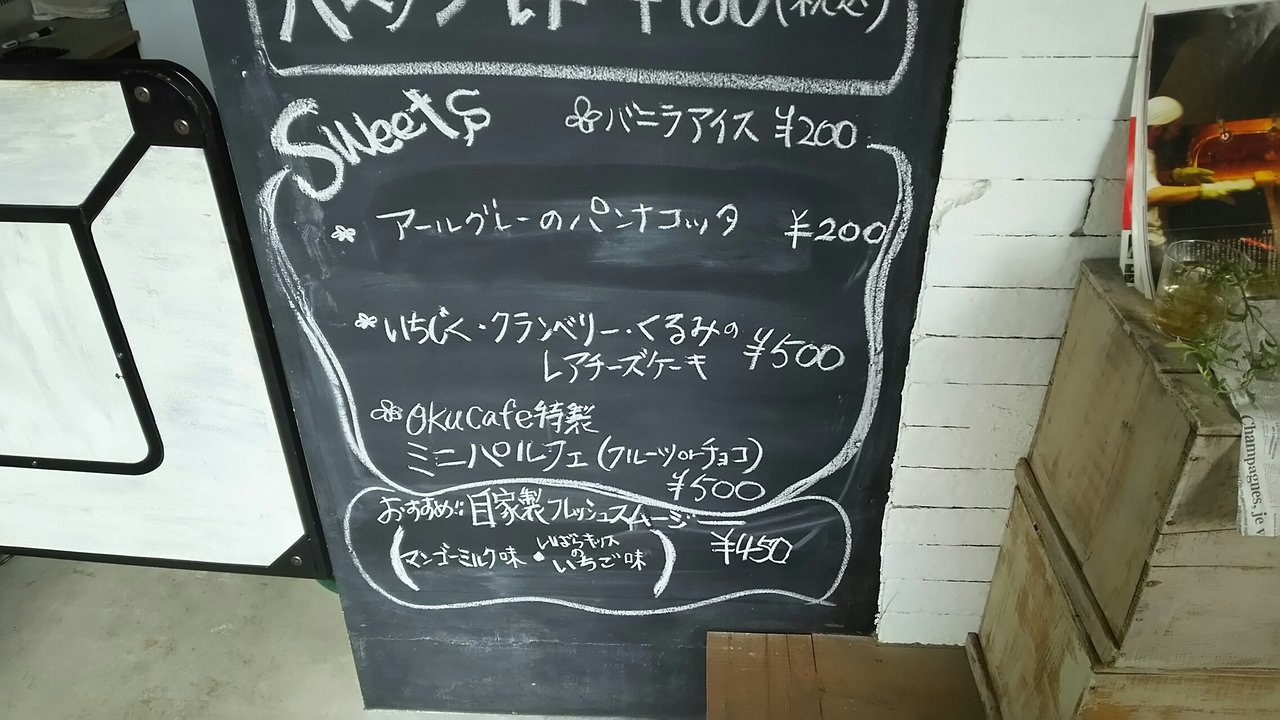 ¥180(税込)
Sweets
バニラアイス ¥200
アールグレーのパンナコッタ ¥200
いちじく・クランベリー・くるみの
レアチーズケーキ ¥500
Oku Cafe特製
ミニパルフェ(フルーツorチョコ)
¥500
おすすめ!!自家製フレッシュスムージー
(マンゴーミルク味・いばらキッスのいちご味) ¥450
Champagnes, je